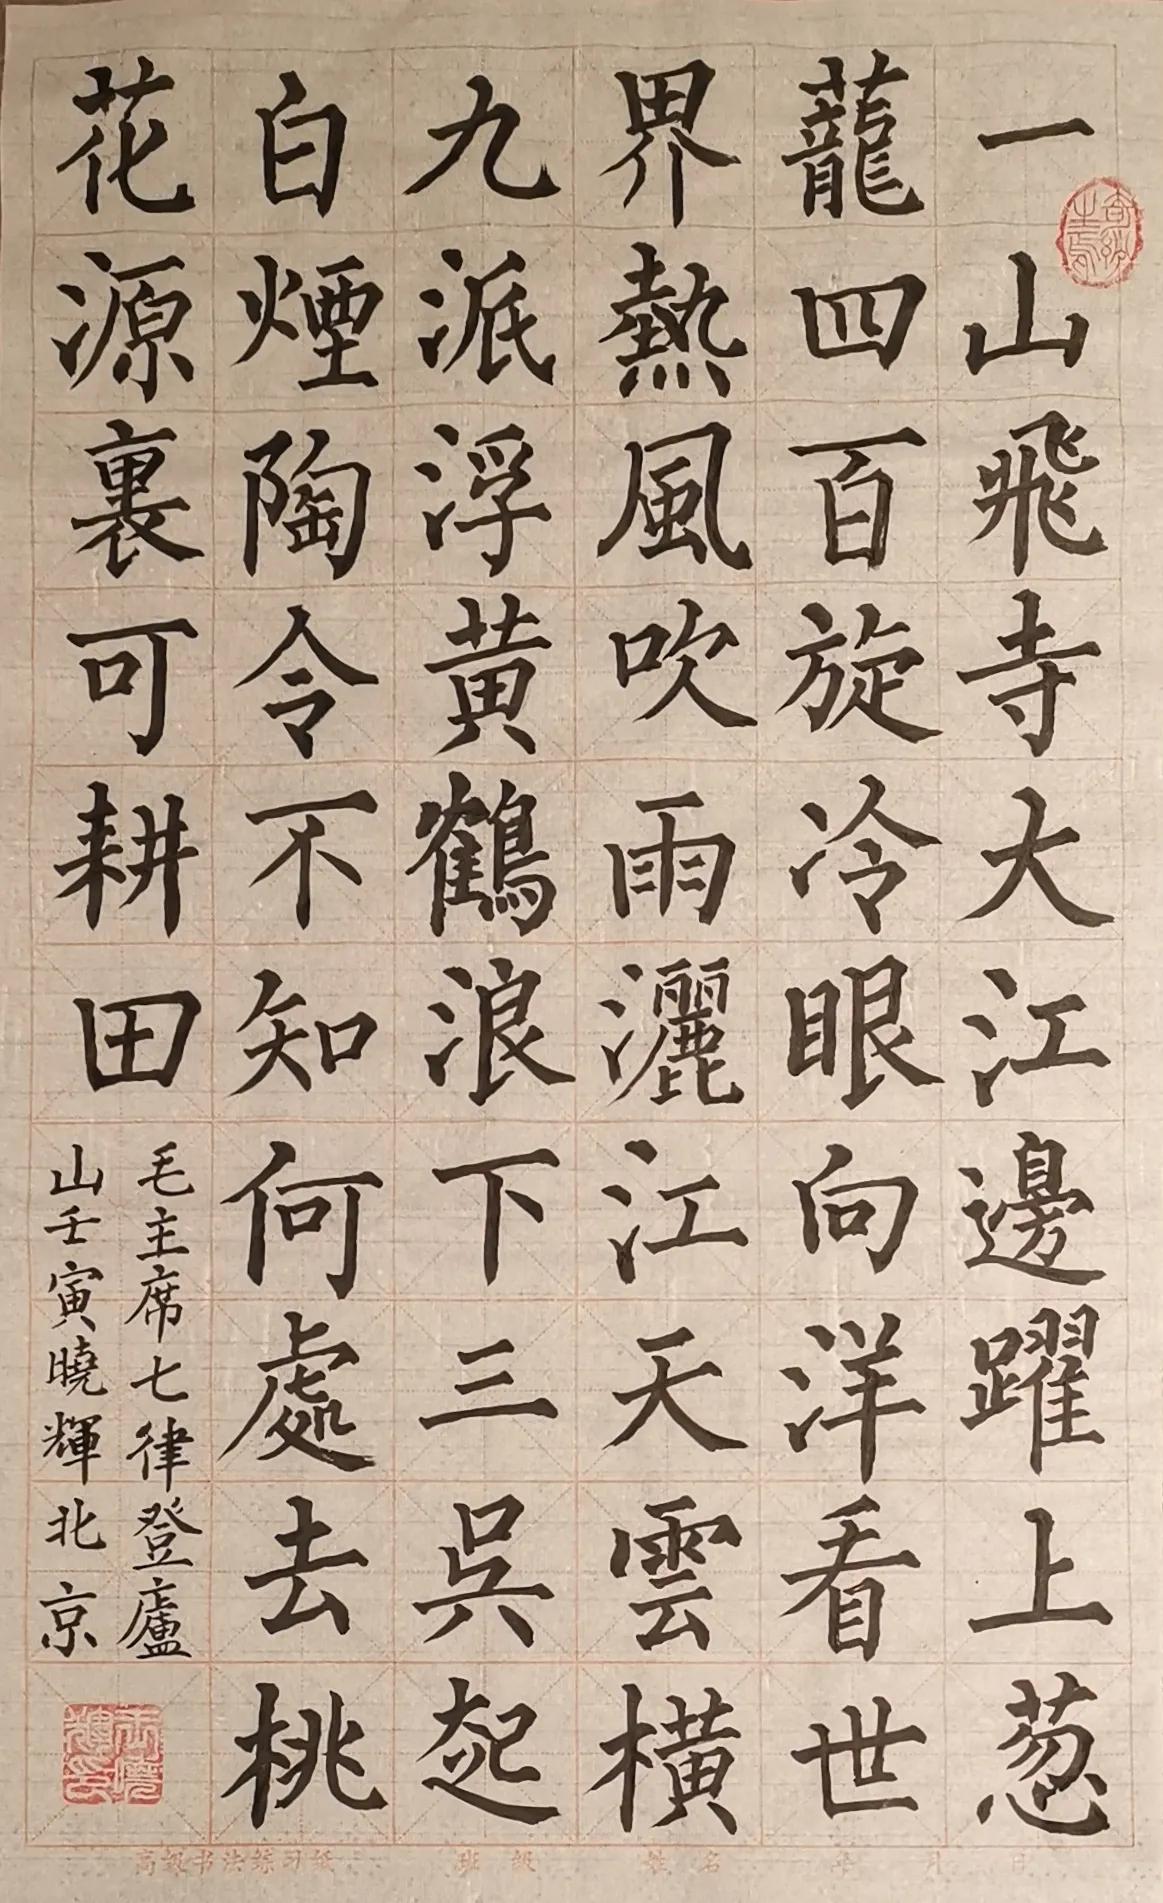 一山飛寺大江邊躍上葱
蘢四百旋冷眼向洋看世
界熱風吹雨灑江天雲横
九派浮黄鶴浪下三吳起
白煙陶令不知何處去桃
花源裏可耕田
毛主席七律登廬
山壬寅曉輝北京
高级书法练习纸 班级 姓名 年 月 日